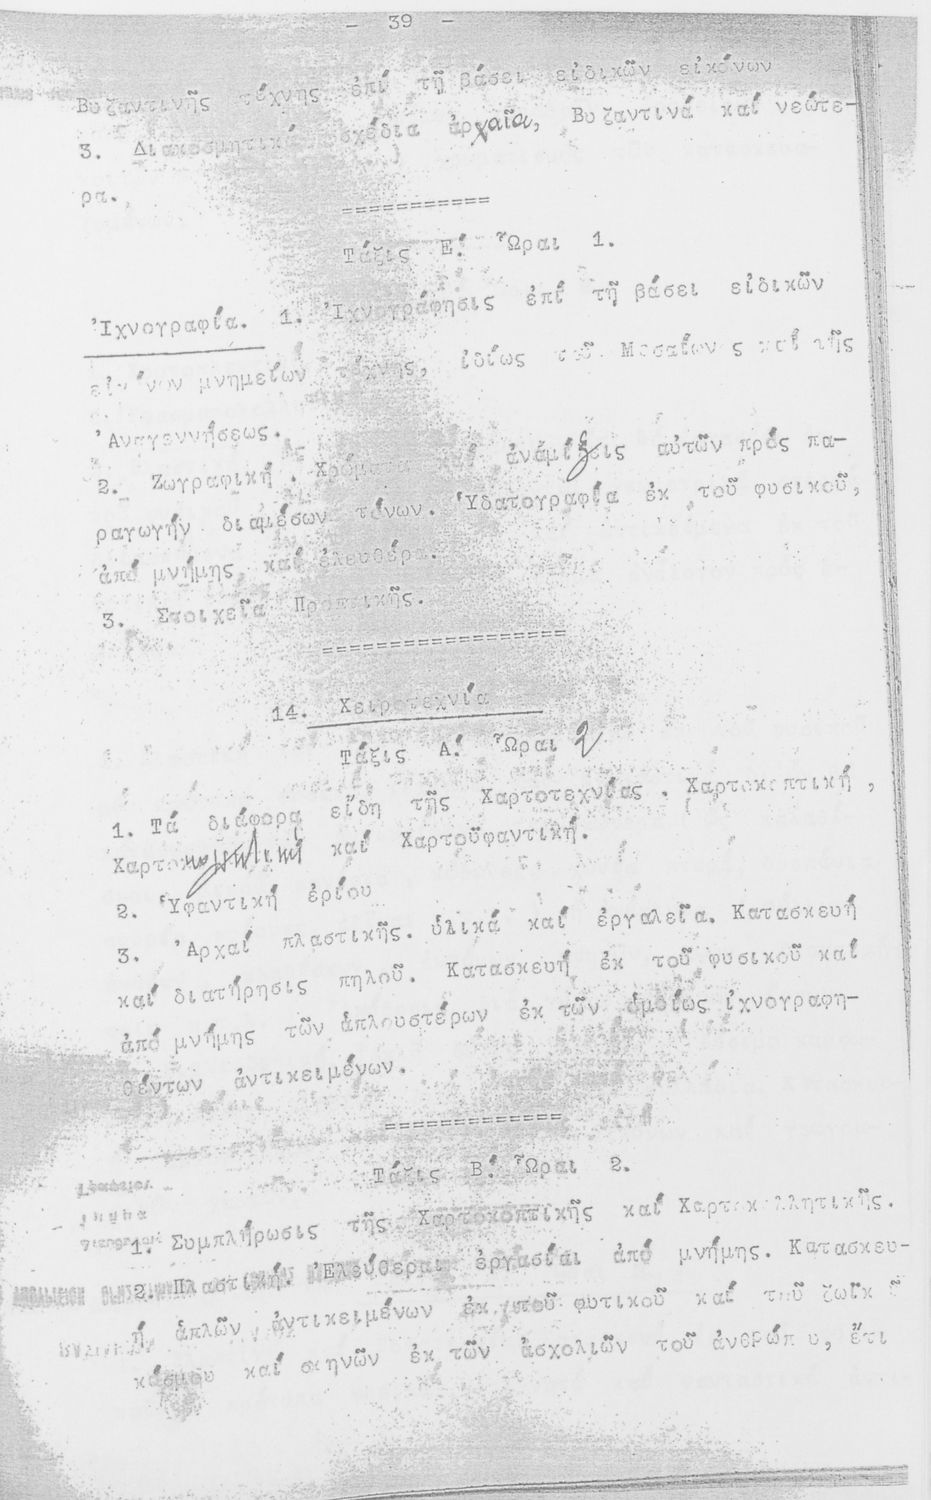 - 39 -
Βυζαντινῆς τέχνης ἐπί τῇ βάσει εἰδικῶν εἰκόνων
3. Διακοσμητικά σχέδια ἀρχαῖα, Βυζαντινά καί νεώτε-
ρα.
===========
Τάξις Ε! Ὧραι 1.
Ἰχνογραφία. 1. Ἰχνογράφησις ἐπί τῇ βάσει εἰδικῶν
εἰκόνων μνημείων τέχνης, ἰδίως τοῦ Μεσαίωνος καί τῆς
Ἀναγεννήσεως.
2. Ζωγραφική. Χρώματα καί ἀνάμιξις αὐτῶν πρός πα-
ραγωγήν διαμέσων τόνων. Ὑδατογραφία ἐκ τοῦ φυσικοῦ,
ἀπό μνήμης καί ἐλευθέρα.
3. Στοιχεῖα Προπτικῆς.
==================
14. Χειροτεχνία
Τάξις Α! Ὧραι 2
1. Τά διάφορα εἴδη τῆς Χαρτοτεχνίας. Χαρτοκοπτική,
καί Χαρτοϋφαντική.
2. Ὑφαντική ἐρίου
3. Ἀρχαί πλαστικῆς. ὑλικά καί ἐργαλεῖα. Κατασκευή
καί διατήρησις πηλοῦ. Κατασκευή ἐκ τοῦ φυσικοῦ καί
ἀπό μνήμης τῶν ἁπλουστέρων ἐκ τῶν ὁμοίως ἰχνογραφη-
θέντων ἀντικειμένων.
=============
Τάξις Β! Ὧραι 2.
1. Συμπλήρωσις τῆς Χαρτοκοπτικῆς καί Χαρτοκολλητικῆς.
2. Πλαστική. Ἐλεύθεραι ἐργασίαι ἀπό μνήμης. Κατασκευ-
ή ἁπλῶν ἀντικειμένων ἐκ τοῦ φυτικοῦ καί τοῦ ζωϊκοῦ
κόσμου καί σκηνῶν ἐκ τῶν ἀσχολιῶν τοῦ ἀνθρώπου, ἔτι